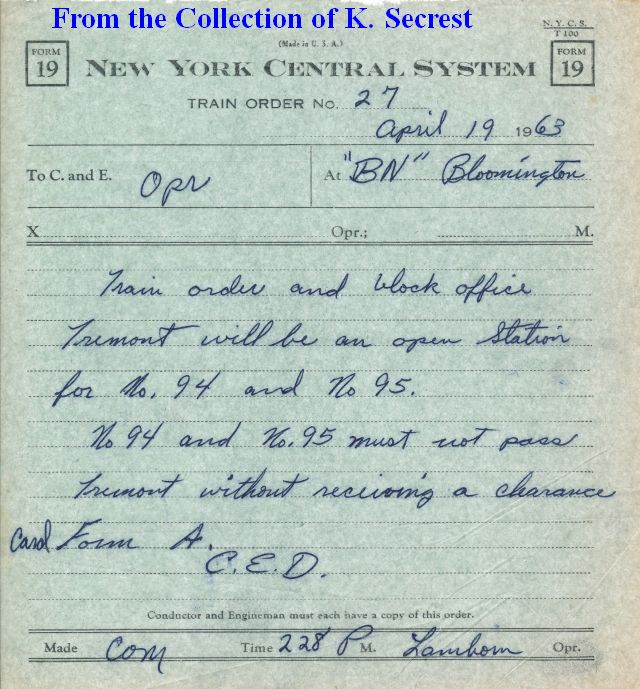 From the Collection of K. Secrest
N. Y. C. S.
T 100
(Made in U. S. A.)
FORM 19 NEW YORK CENTRAL SYSTEM FORM 19
TRAIN ORDER No. 27
April 19 1963
To C. and E. Opr At "BN" Bloomington
X Opr.; M.
Train order and block office
Tremont will be an open Station
for No. 94 and No 95.
No 94 and No. 95 must not pass
Tremont without receiving a clearance
Card Form A.
C.E.D.
Conductor and Engineman must each have a copy of this order.
Made Com Time 228 P M. Lamborn Opr.